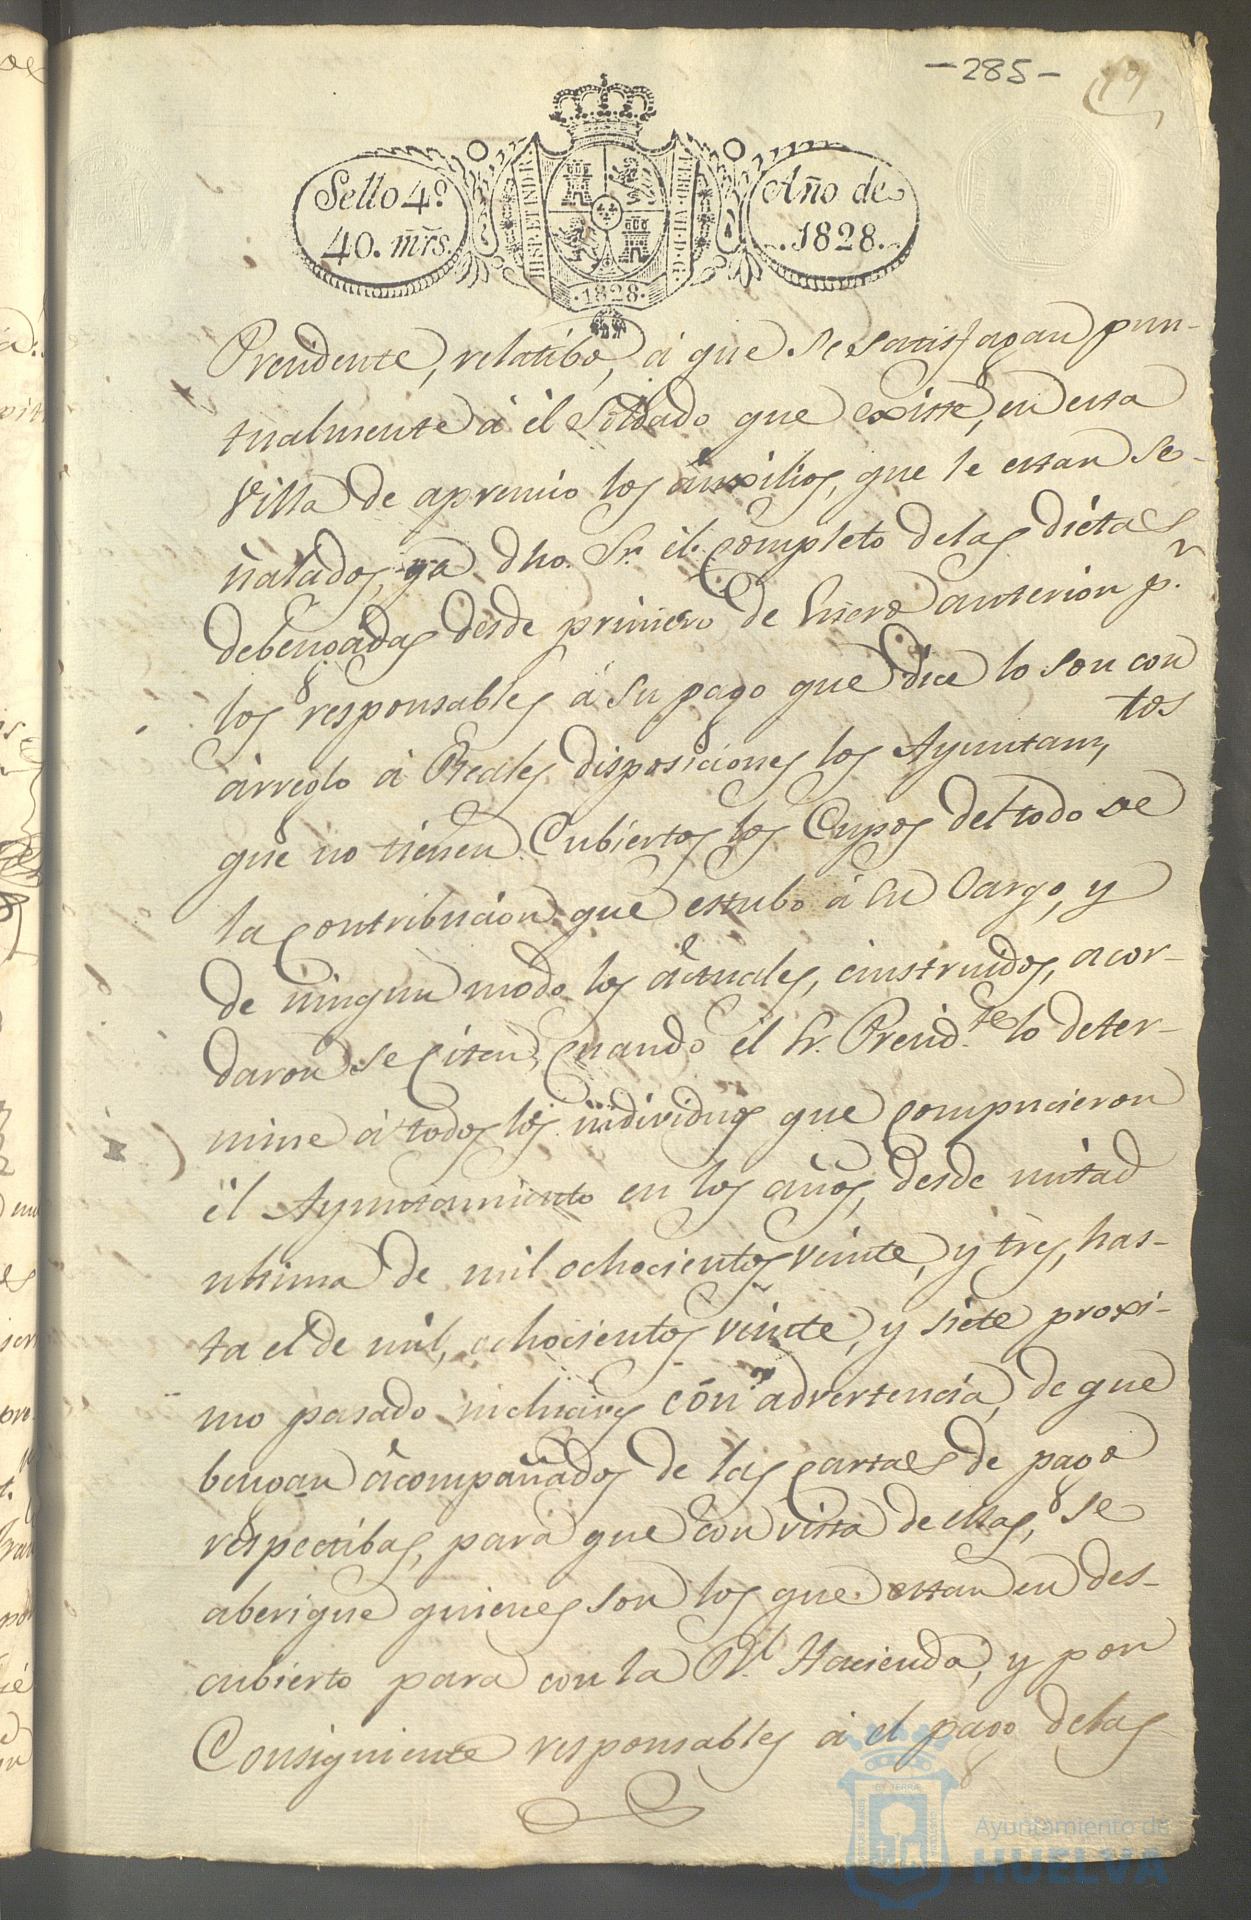 -285-
Sello 4º
40. mrs.
HISP. ET IND. R.
FERD. VII. D. G.
Año de
1828.
·1828·
Presidente, relatibo, á que se satisfagan pun-
tualmente á él Soldado que existe, en esta
Villa de apremio los áuxilios, que le estan se-
ñalados, ya dho. Sr. él completo delas diétas
debengádas desde primero de Enero anterior pr.
los responsables á su pago que dice lo son con
árreglo á Reales disposiciones los Ayuntamtos
que no tienen Cubiertos los Cupos del todo de
la contribucion que estubo á su Cargo, y
de ningun modo los áctuales, éinstruidos, acor-
daron se Citen, cuando él Sr. Presidte. lo deter-
mine á todos los individuos que compucieron
él Ayuntamiento en los años, desde mitad
ultima de mil ochocientos veinte, y tres, has-
ta el de mil, ochocientos veinte, y siete proxi-
mo pasado inclucives con advertencia, de que
bengan ácompañados de las cartas de pago
respectibas, para que con vista de ellas, se
aberigue quienes son los que estan en des-
cubierto para con la Rl. Hacienda, y por
Consiguiente responsables á el pago delas
Ayuntamiento de
HUELVA